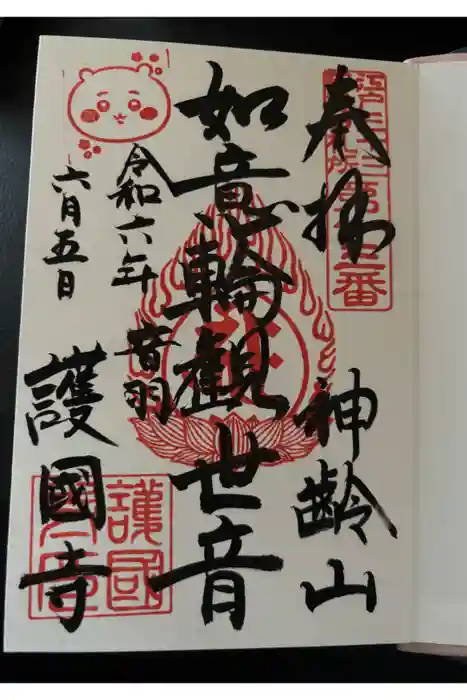 奉拝
神齢山
如意輪観世音
令和六年
六月五日
音羽
護國寺
護國